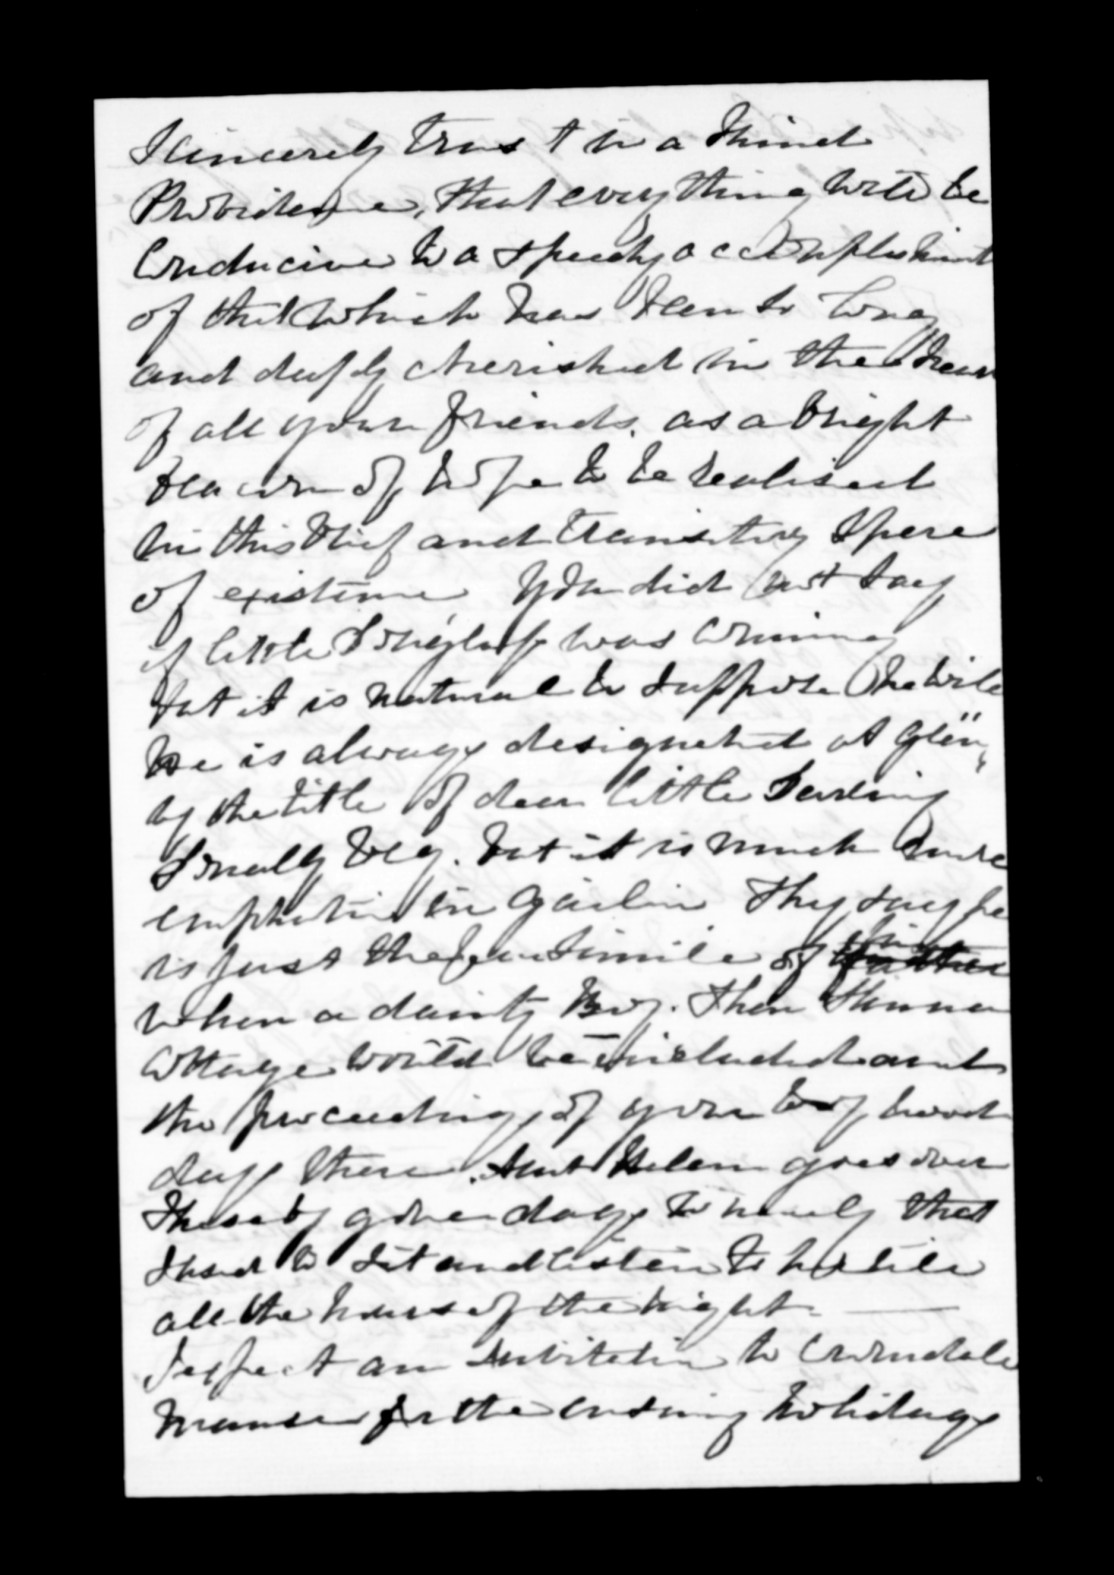 I sincerely trust in a kind
Providence, that every thing will be
Conducive to a speedy accomplishment
of that which has been so long
and deeply cherished in the hearts
of all your friends. as a bright
beacon of hope to be realised
in this brief and transitory spere
of existence You did not say
if little was coming
but it is natural to suppose he will
he is always designated at Glen
by the title of dear little darling
but it is much more
emphatic in Gaelic They say he
is just the facsimile of his
when a dainty boy. Then
Cottage would be included and
the proceeding of your boy hood
days there. Aunt Helen goes over
these by gone days so nicely that
I used to sit and listen to her till
all the hours of the night. —
I expect an invitation to
Manse for the ensuing holidays